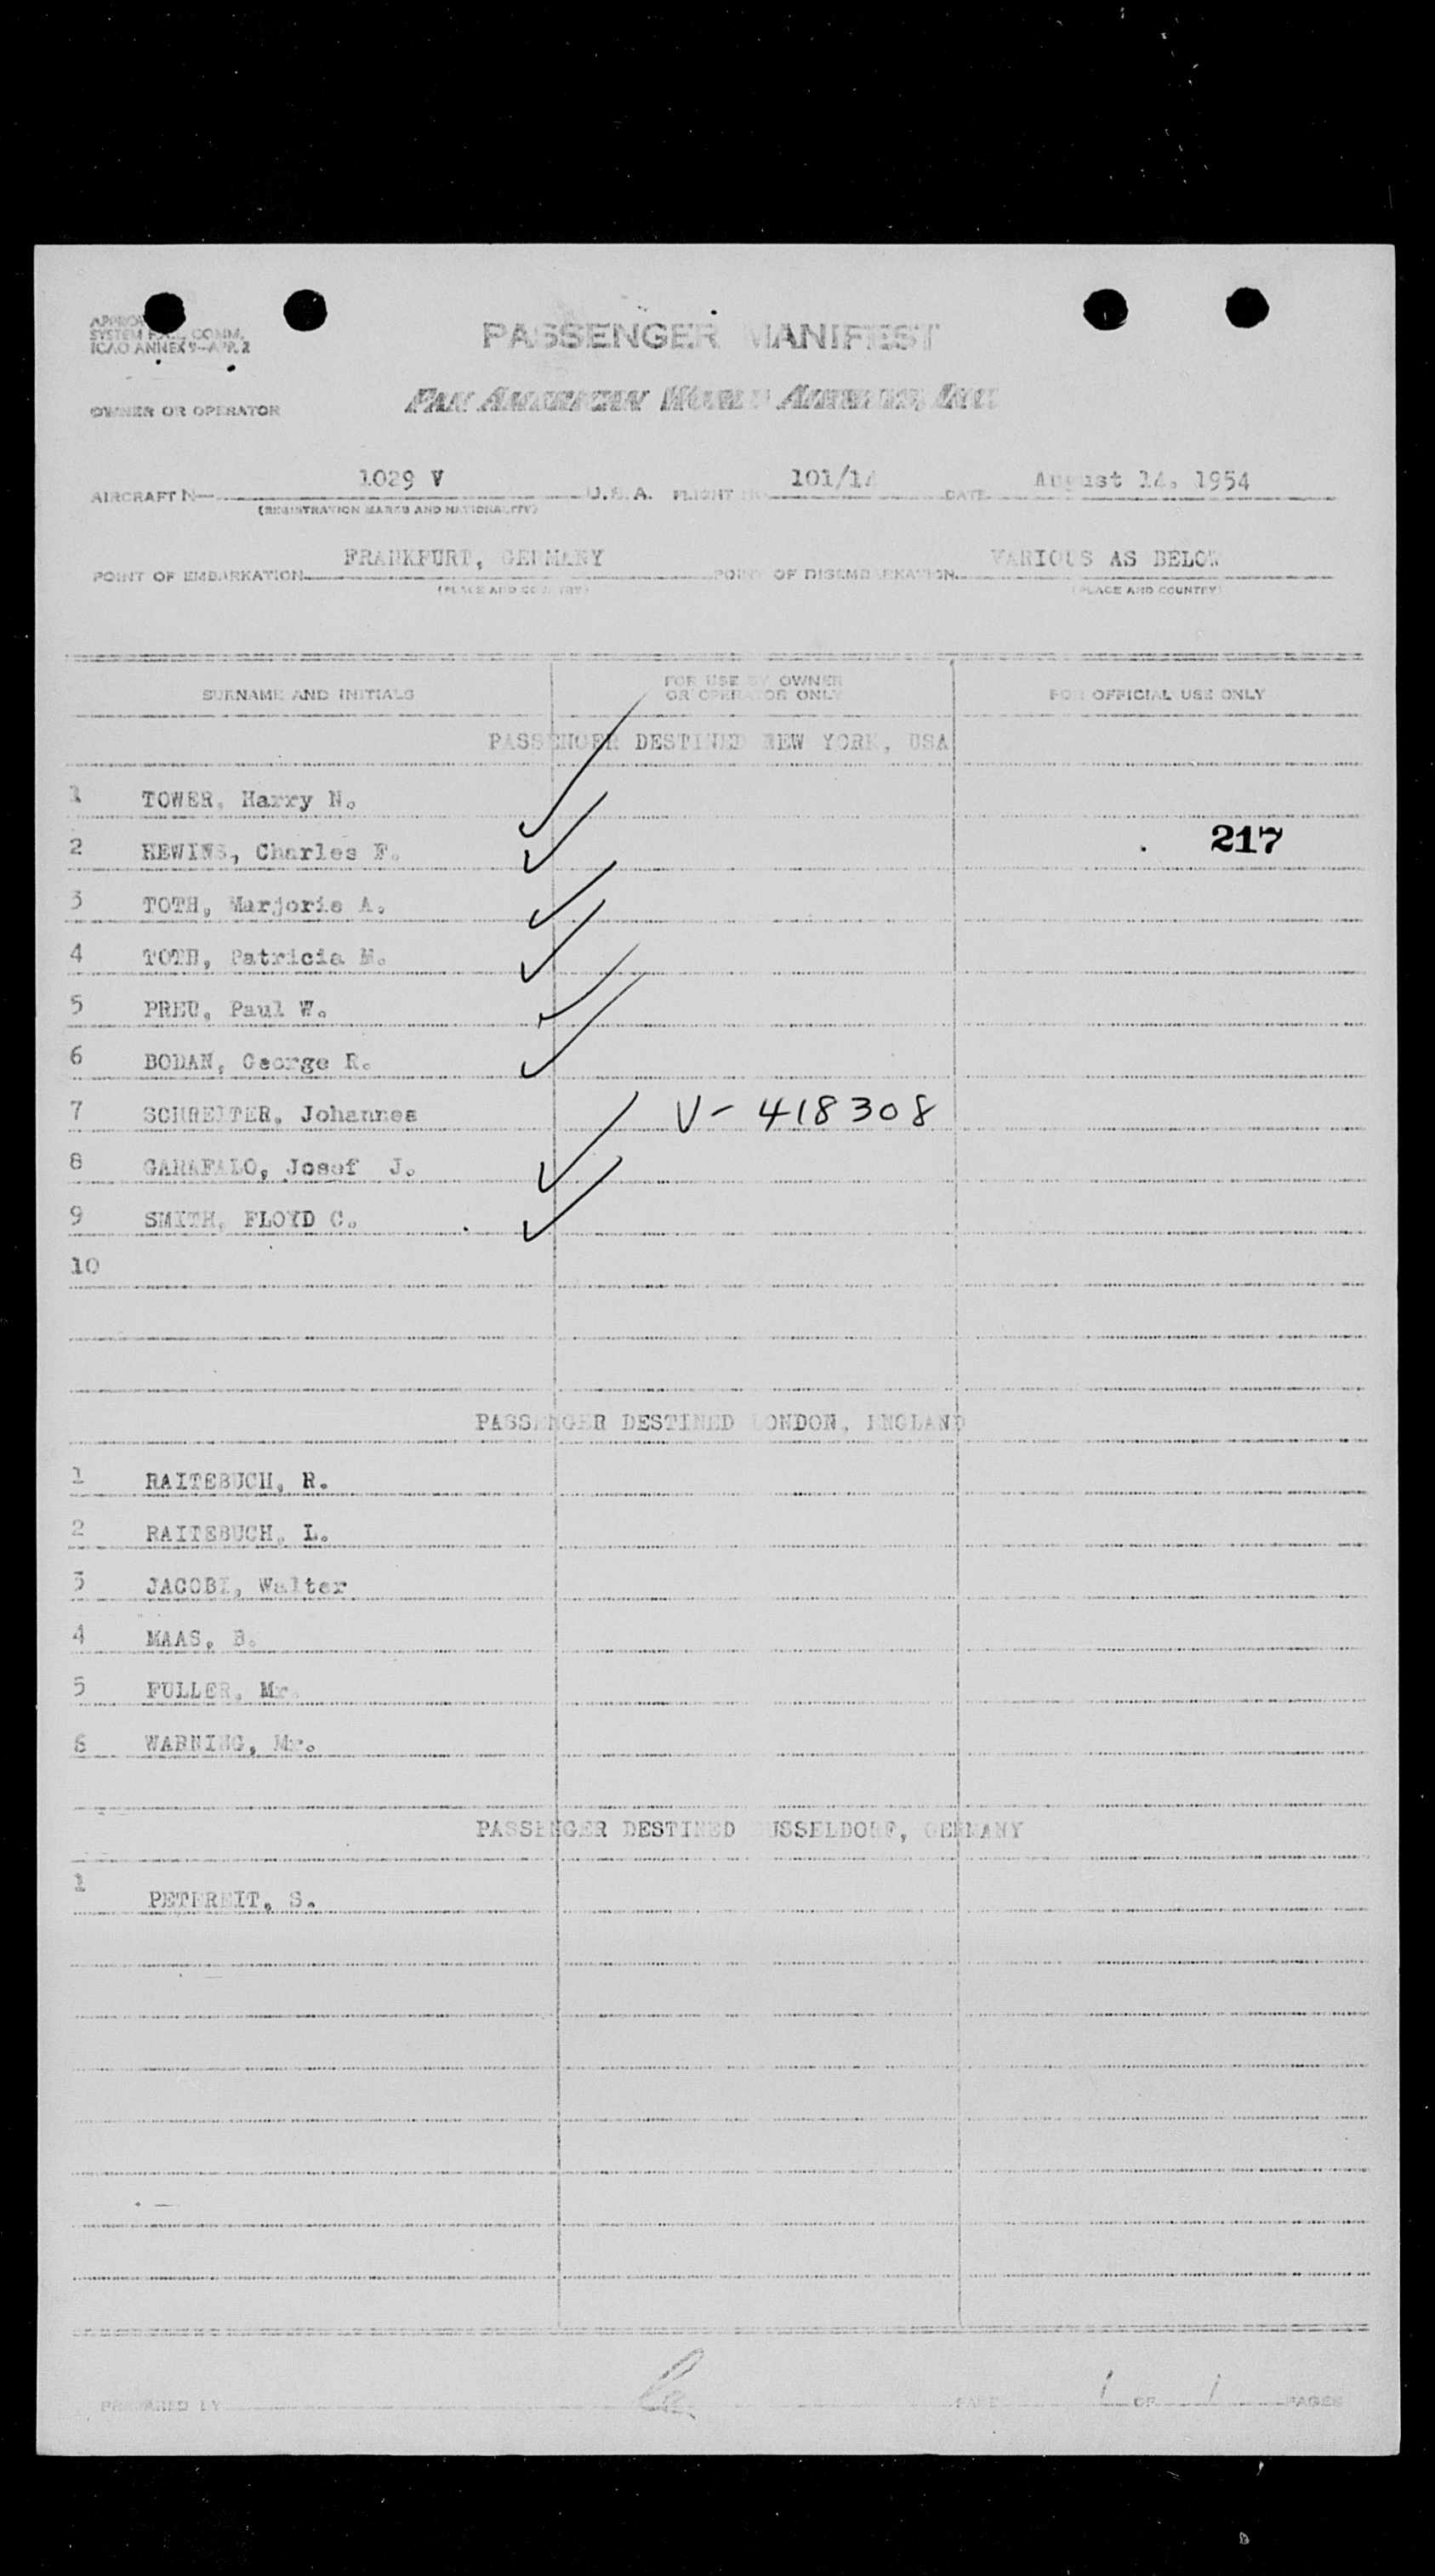 SYSTEM FAL. COMM.
ICAO ANNEX 9-APP. 2
PASSENGER MANIFEST
OWNER OR OPERATOR
PAN AMERICAN WORLD AIRWAYS, INC.
AIRCRAFT N— 1029 V U.S.A. FLIGHT NO. 101/14 DATE August 14, 1954
(REGISTRATION MARKS AND NATIONALITY)
POINT OF EMBARKATION FRANKFURT, GERMANY POINT OF DISEMBARKATION VARIOUS AS BELOW
(PLACE AND COUNTRY) (PLACE AND COUNTRY)
SURNAME AND INITIALS FOR USE BY OWNER OR OPERATOR ONLY FOR OFFICIAL USE ONLY
PASSENGER DESTINED NEW YORK, USA
1 TOWER, Harry N. ✓
2 HEWINS, Charles F. ✓ 217
3 TOTH, Marjorie A. ✓
4 TOTH, Patricia M. ✓
5 PREU, Paul W. ✓
6 BODAN, George R. ✓
7 SCHREITER, Johannes V-418308
8 GARAFALO, Josef J. ✓
9 SMITH, FLOYD C. ✓
10
PASSENGER DESTINED LONDON, ENGLAND
1 RAITEBUCH, R.
2 RAITEBUCH, L.
3 JACOBI, Walter
4 MAAS, B.
5 FULLER, Mr.
6 WARNING, Mr.
PASSENGER DESTINED DUSSELDORF, GERMANY
1 PETEREIT, S.
PREPARED BY PAGE 1 OF 1 PAGES